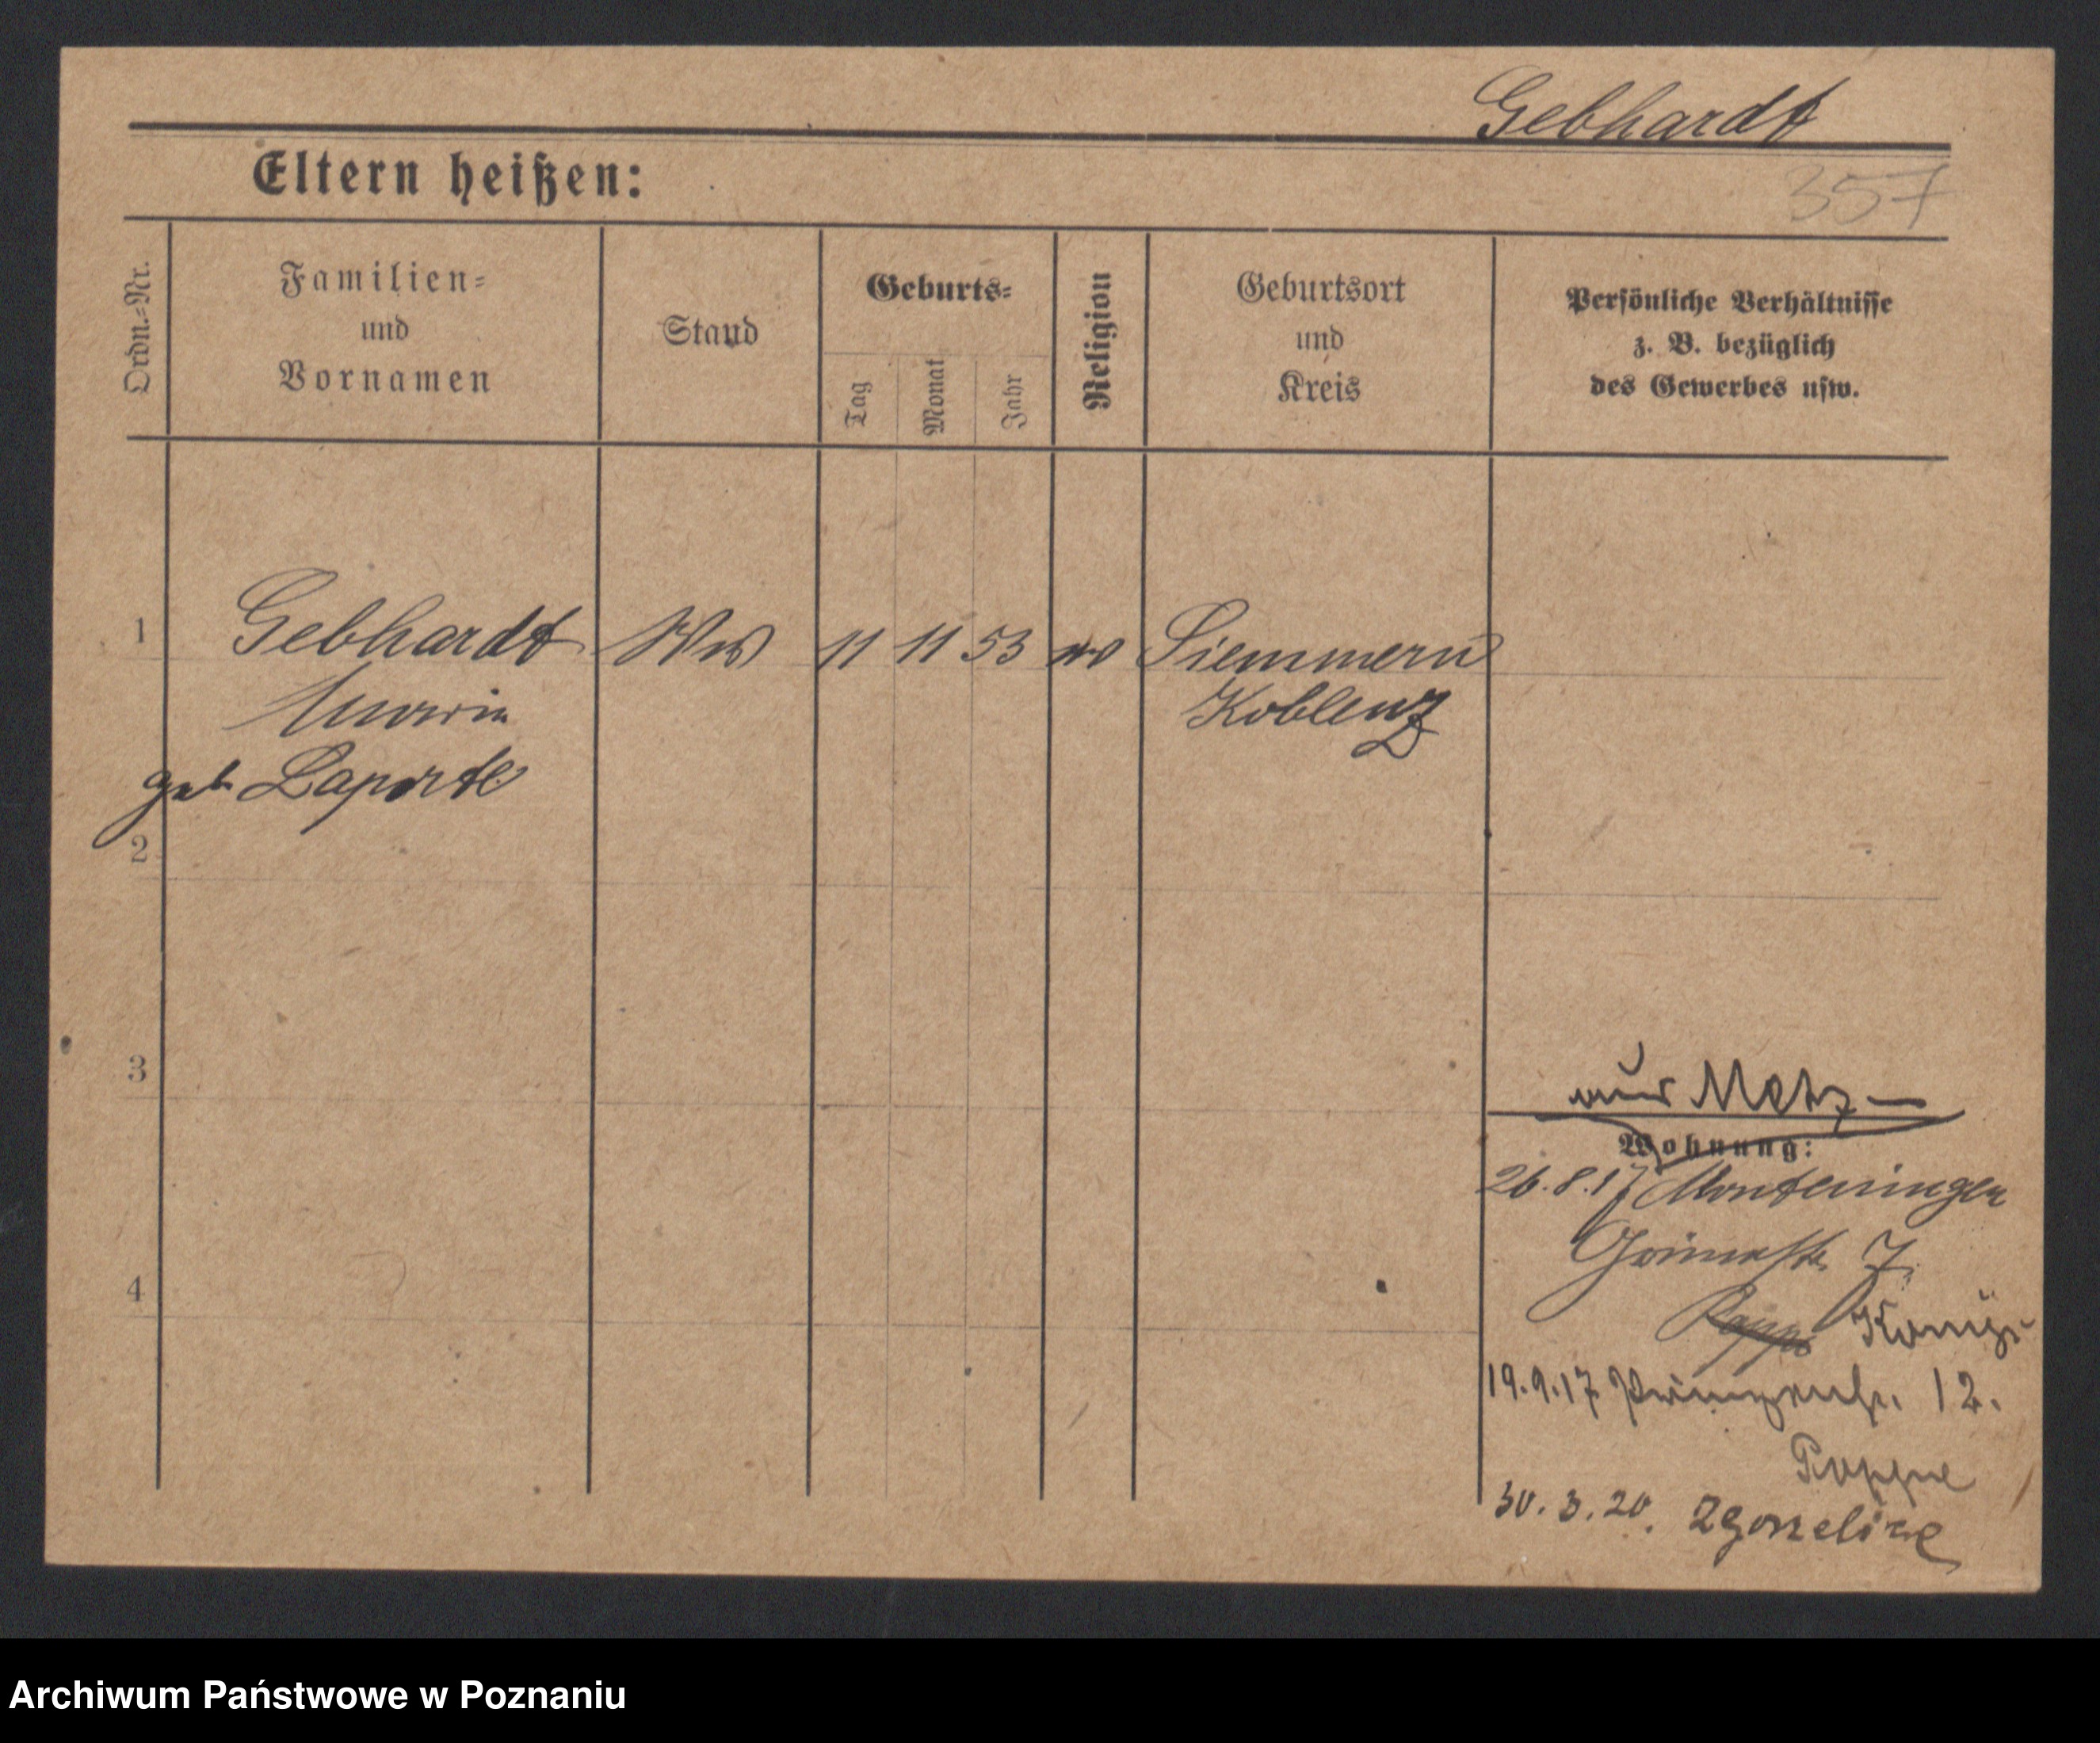 Gebhardt
357
Eltern heißen:
Ordn.=Nr.
Familien=
und
Vornamen
Stand
Geburts=
Tag
Monat
Jahr
Religion
Geburtsort
und
Kreis
Persönliche Verhältnisse
z. B. bezüglich
des Gewerbes usw.
1
Gebhardt
Ww
11 11 53
Siemmern
Koblenz
geb Laporte
2
3
4
aus Metz —
Wohnung:
26.8.17 Monteningen
7.
Königs
19.9.17 Prinzenstr. 12.
Poppe
30.3.20. Zgorzelice
Archiwum Państwowe w Poznaniu